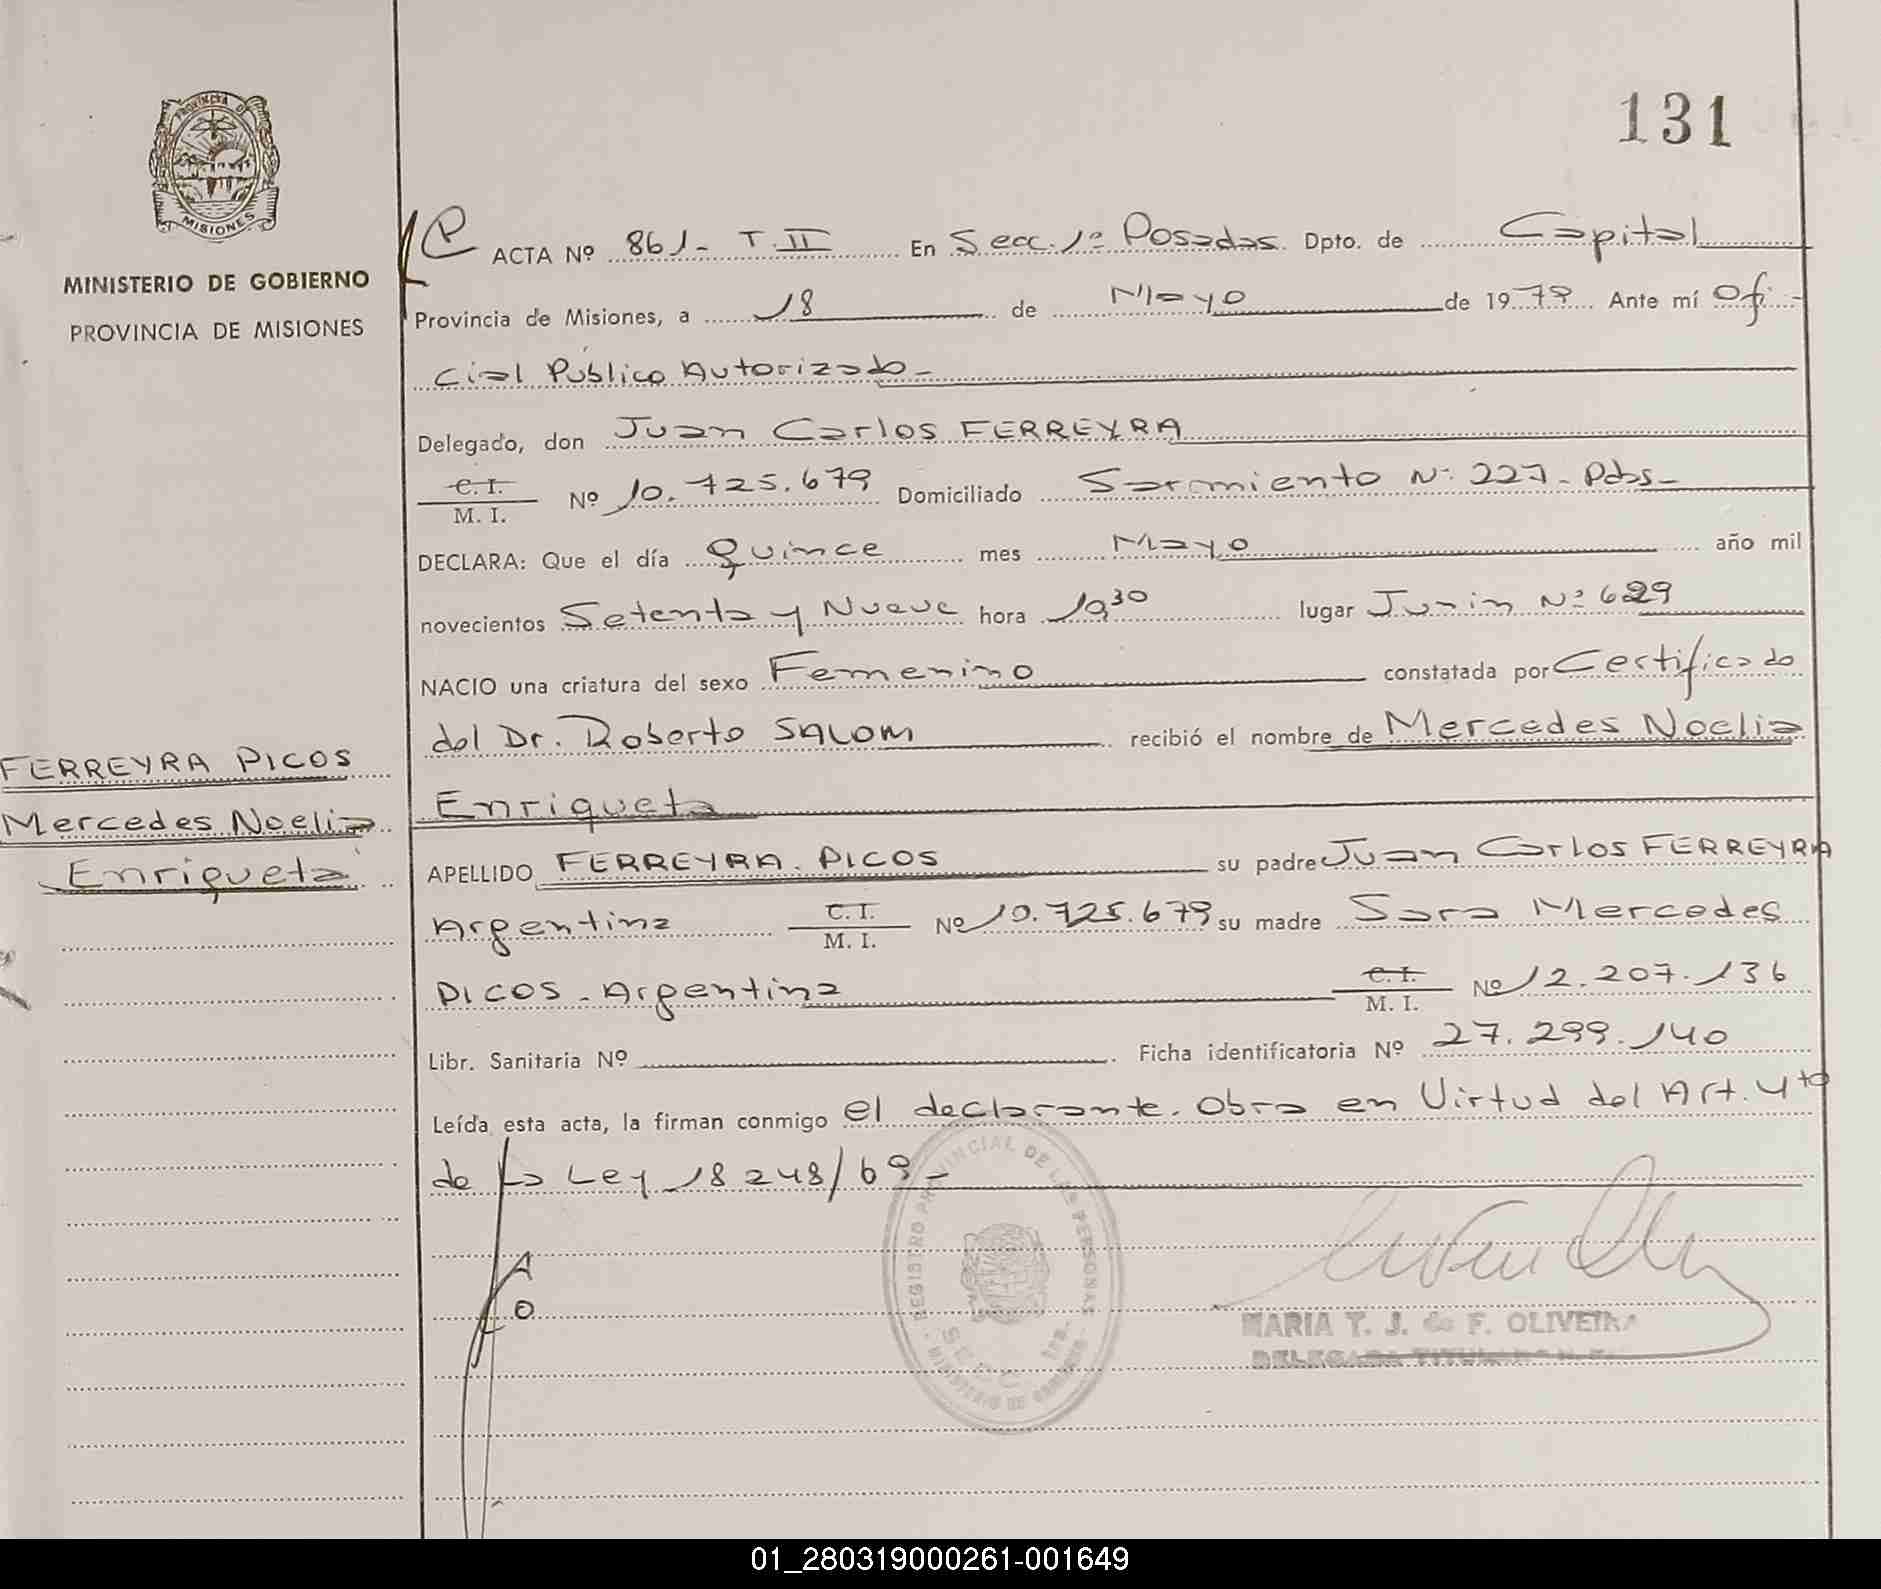 131
PROVINCIA DE
MISIONES
MINISTERIO DE GOBIERNO
PROVINCIA DE MISIONES
FERREYRA PICOS
Mercedes Noelia
Enriqueta
P ACTA Nº 861- T.II En Secc. 1ª Posadas. Dpto. de Capital
Provincia de Misiones, a 18 de Mayo de 1979 Ante mí Ofi-
cial Público Autorizado-
Delegado, don Juan Carlos FERREYRA
C. I. M. I. Nº 10.725.679 Domiciliado Sarmiento Nº 227- Pdas-
DECLARA: Que el día Quince mes Mayo año mil
novecientos Setenta y Nueve hora 19³⁰ lugar Junin Nº 629
NACIO una criatura del sexo Femenino constatada por Certificado
del Dr. Roberto SALOM recibió el nombre de Mercedes Noelia
Enriqueta
APELLIDO FERREYRA PICOS su padre Juan Carlos FERREYRA
Argentina C. I. M. I. Nº 10.725.679 su madre Sara Mercedes
PICOS - Argentina C. I. M. I. Nº 12.207.136
Libr. Sanitaria Nº Ficha identificatoria Nº 27.299.140
Leída esta acta, la firman conmigo el declarante. Obra en Virtud del Art. 4to
de la Ley 18248/69-
REGISTRO PROVINCIAL DE LAS PERSONAS
SECC. 1ra.
MINISTERIO DE GOBIERNO
MARIA T. J. de F. OLIVEIRA
DELEGADA TITULAR
01_280319000261-001649